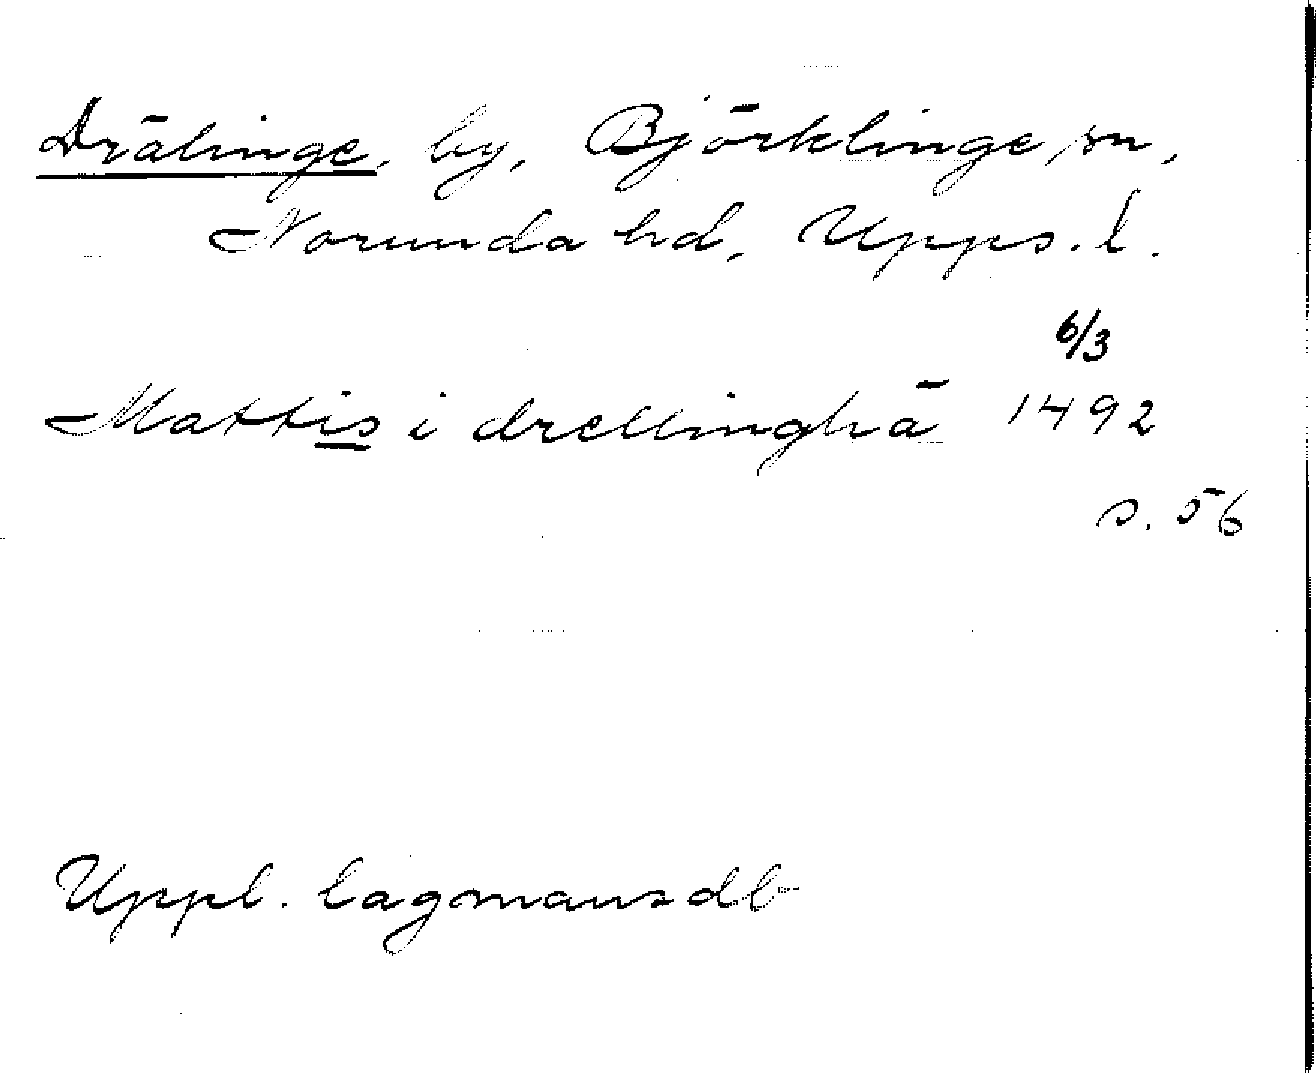 Drälinge, by, Björklinge sn,
Norunda hd, Upps. l.
6/3
Mattis i drellinghā 1492
s. 56
Uppl. lagmansdb